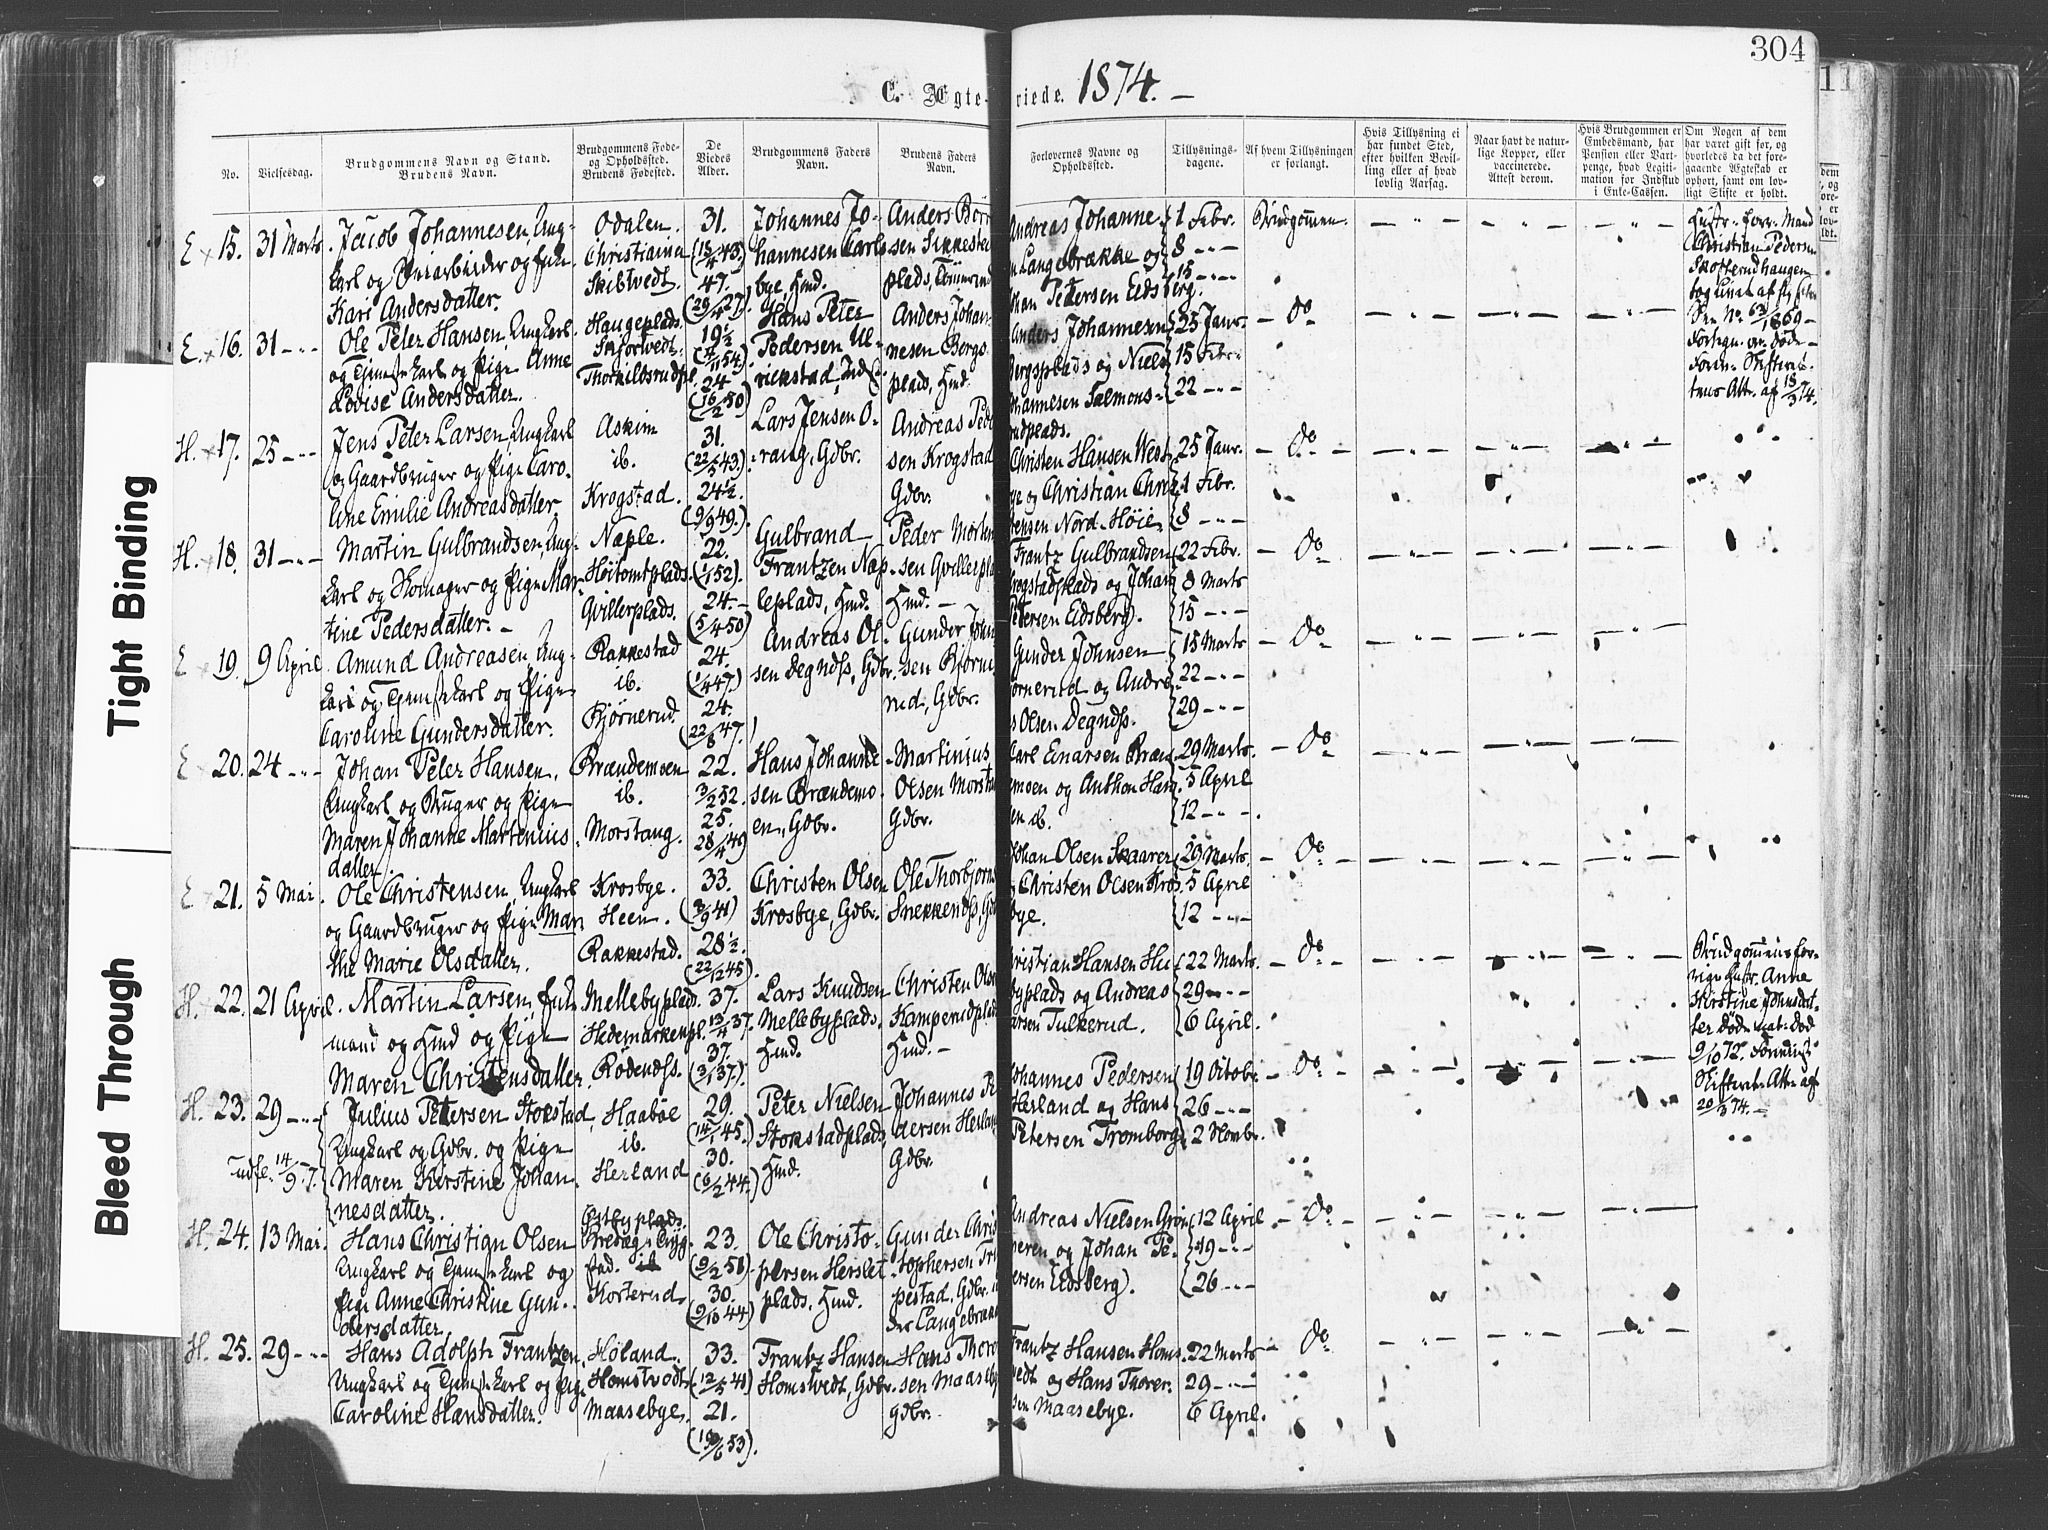 304
11
C. Ægte-
viede. 1874. —
No.
Vielsesdag.
Brudgommens Navn og Stand.
Brudens Navn.
Brudgommens Føde-
og Opholdssted.
Brudens Fødested.
De
Viedes
Alder.
Brudgommens Faders
Navn.
Brudens Faders
Navn.
Forlovernes Navne og
Opholdssted.
Tillysnings-
dagene.
Af hvem Tillysningen
er forlangt.
Hvis Tillysning ei
har fundet Sted,
efter hvilken Bevil-
ling eller af hvad
lovlig Aarsag.
Naar havt de natur-
lige Kopper, eller
vaccinerede.
Attest derom.
Hvis Brudgommen er
Embedsmand, har
Pension eller Vart-
penge, hvad Legiti-
mation for Indskud
i Enke-Cassen.
Om Nogen af dem
har varet gift før, og
hvorledes da det fore-
gaaende Ægteskab er
ophørt, samt om lov-
ligt Skifte er holdt.
Tight Binding
Bleed Through
E × 15. 31 Marts
Jacob Johannesen, Ung-
karl og
Kari Andersdatter.
Odalen.
Christiania
Skibtvedt.
31.
(13/4 43.)
47.
(29/4 27)
Johannes Jo-
hannesen Carls-
bye, Hmd.
Anders Bør
sen Sikkestad
plads,
Andreas Johanne-
n Langebrække og
Johan Petersen Edsberg.
1 Febr.
8 — " —
15 — " —
Brudgommen.
Christian Pedersen
Skofterudhaugen
No 63/1869 —
Att. af 18/3 74.
E. × 16. 31 — " —
Ole Peter Hansen, Ungkarl
og Tjenestekarl og Pige Anne
Lovise Andersdatter.
Haugeplads.
Skjørvedt.
Thorkildsrudpl.
19½
(4/11 54.)
24
(16/2 50)
Hans Peter
Pedersen Ul-
rickstad, Ind
Anders Johan-
nesen Bergs-
plads, Hmd.
Anders Johannesen
Bergsplads og Niels
Johannesen Salmons-
rudplads.
25 Janr.
15 Febr.
22 — " —
— Do —
H. × 17. 25 — " —
Jens Peter Larsen, Ungkarl
og Gaardbruger og Pige Caro-
line Emilie Andreasdatter.
Askim
ib.
Krogstad.
31.
(22/5 43.)
24½.
(9/9 49.)
Lars Jensen O-
rang, Gdbr.
Andreas Peder
sen Krogstad
Gdbr.
Christen Hansen West-
bye og Christian Chri-
stensen Nord-Høie
25 Janr.
1 Febr.
8 — " —
— Do —
H. × 18. 31 — " —
Martin Gulbrandsen, Ung-
karl og Skomager og Pige Mar-
tine Pedersdatter. —
Næple.
Høitomtplads.
Qvillerplads.
22.
(1/1 52).
24. —
(5/4 50)
Gulbrand
Frantzen Næp-
leplads, Hmd.
Peder Morten
sen Qvillerpla
Hmd. —
Frantz Gulbrandsen
Krogstadplads og Johan
Petersen Edsberg).
22 Febr.
8 Marts
15 — " —
— Do —
E × 19. 9 April.
Amund Andreasen, Ung-
karl og Tjenestekarl og Pige
Caroline Gundersdatter.
Rakkestad
ib.
Bjørnerud.
24.
(1/4 47.)
24.
(22/8 47.)
Andreas Ol-
sen Degnæs, Gdbr.
Gunder John
sen Bjørne
rud, Gdbr.
Gunder Johnsen
Bjørnerud og Andre
s Olsen Degnds.
15 Marts
22 — " —
29 — " —
— Do —
E × 20. 24 — " —
Johan Peter Hansen,
Ungkarl og Bruger og Pige
Maren Johanne Martinius-
datter.
Brændemoen
ib.
Morstang.
22.
3/2 52.
25.
28/4 49
Hans Johanne-
sen Brændemo-
en, Gdbr.
Martinius
Olsen Morstan
Gdbr.
Carl Enarsen Bræn
emoen og Anthon Han
en ib.
29 Marts.
5 April
12 — " —
— Do —
E × 21. 5 Mai.
Ole Christensen, Ungkarl
og Gaardbruger og Pige Mar-
the Marie Olsdatter.
Krosbye.
Heen.
Rakkestad.
33.
(3/9 41)
28½.
(22/12 45).
Christen Olsen
Krosbye, Gdbr.
Ole Thorbjørns
Snekkenæs, Gdb
Johan Olsen Skaarer
g Christen Olsen Kros
bye.
29 Marts.
5 April
12 — " —
— Do —
H. × 22. 21 April.
Martin Larsen, Enke-
mand og Hmd og Pige
Maren Christensdatter.
Mellebyplads.
Hedemarkenpl.
Rødenæs.
37.
13/4 37
37.
(3/1 37).
Lars Knudsen
Mellebyplads.
Hmd.
Christen Olse
Kamperudplad
Hmd. —
Christian Hansen Hu
byplads og Andreas
Larsen Tulkerud.
22 Marts.
29 — " —
6 April.
— Do —
Brudgommens for-
rige Hustr. Anne
Kirstine Johnsdat-
ter
9/10 72.
Skifteret. Att. af
20/3 74. —
H. 23. 29 — " —
Udfl. 14/9 - 7.
Julius Petersen Stokstad
Ungkarl og Gdbr. og Pige
Maren Kirstine Johan-
nesdatter.
Haabøl
ib.
Herland
29.
(14/1 45.)
30.
(6/2 44.)
Peter Nielsen
Stokstadplads,
Hmd.
Johannes Pe
dersen Herland
Gdbr.
Johannes Pedersen
Herland og Hans
Petersen Tromborg
19 Octobr.
26 — " —
2 Novbr.
— Do —
H. 24. 13 Mai.
Hans Christian Olsen
Ungkarl og Tjenestekarl og
Pige Anne Christine Gun-
dersdatter.
Østbyplads.
Korterud.
23.
(9/2 51)
30.
(9/10 44)
Ole Christo-
phersen Herslet-
plads, Hmd.
Gunder Chris
tophersen Tri
pestad, Gdbr.
der Langebræk
Andreas Nielsen Grøn
neren og Johan Pe-
ersen (Edsberg).
12 April
19 — " —
26 — " —
— Do —
H. 25. 29 — " —
Hans Adolph Frantzen,
Ungkarl og Tjenestekarl og Pige
Caroline Hansdatter.
Høland.
Homstvedt
Maasebye.
33.
(12/5 41)
21.
(19/6 53).
Frantz Hansen
Homstvedt, Gdbr.
Hans Thore
sen Maaseby
Gdbr.
Frantz Hansen Homs-
vedt og Hans Thorer
sen Maasebye.
22 Marts
29 — " —
6 April.
— Do —